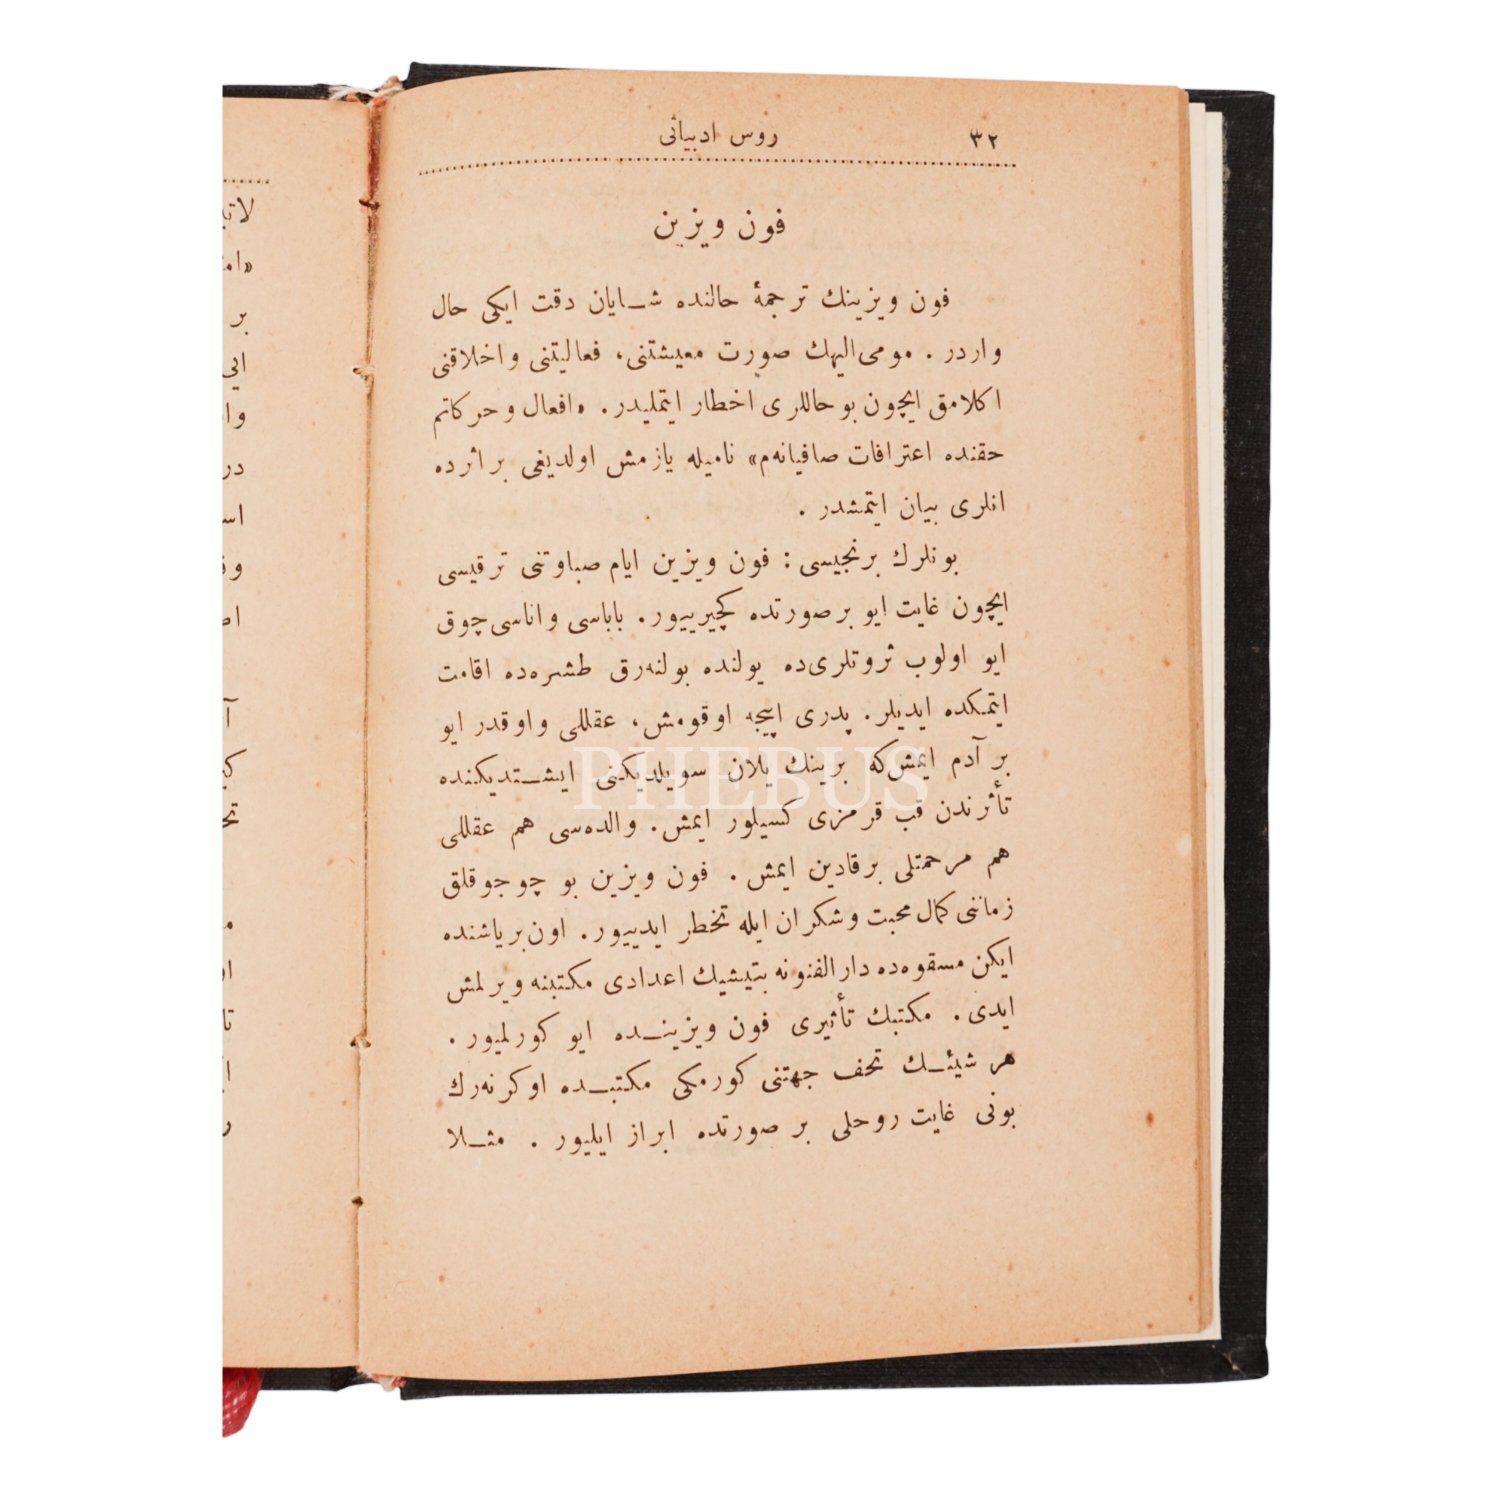 ٣٢
روس ادبیاتی
فون ویزین
فون ویزینك ترجمۀ حالنده شایان دقت ایکی حال
واردر . مومی‌الیهك صورت معیشتنی، فعالیتنی واخلاقنی
اکلامق ایچون بوحاللری اخطار ایتملیدر. «افعال وحرکاتم
حقنده اعترافات صافیانه‌م» نامیله یازمش اولدیغی براثرده
انلری بیان ایتمشدر .
بونلرك برنجیسی : فون ویزین ایام صباوتنی ترقیسی
ایچون غایت ایو برصورتده کچیرییور. باباسی واناسی‌چوق
ایو اولوب ثروتلری‌ده یولنده بولنه‌رق طشره‌ده اقامت
ایتمکده ایدیلر. پدری اپیجه اوقومش، عقللی واوقدر ایو
بر آدم ایمش‌که برینك یلان سویلدیکنی ایشتدیکنده
تأثرندن قپ قرمزی کسیلور ایمش. والده‌سی هم عقللی
هم مرحمتلی برقادین ایمش . فون ویزین بو چوجوقلق
زماننی کمال محبت وشکران ایله تخطر ایدییور. اون‌بریاشنده
ایکن مسقوه‌ده دارالفنونه بتیشیك اعدادی مکتبنه ویرلمش
ایدی. مکتبك تأثیری فون ویزینده ایو کورلمیور.
هر شیئك تحف جهتنی کورمکی مکتبده اوکرنه‌رك
بونی غایت روحلی بر صورتده ابراز ایلیور . مثلا
PHEBUS